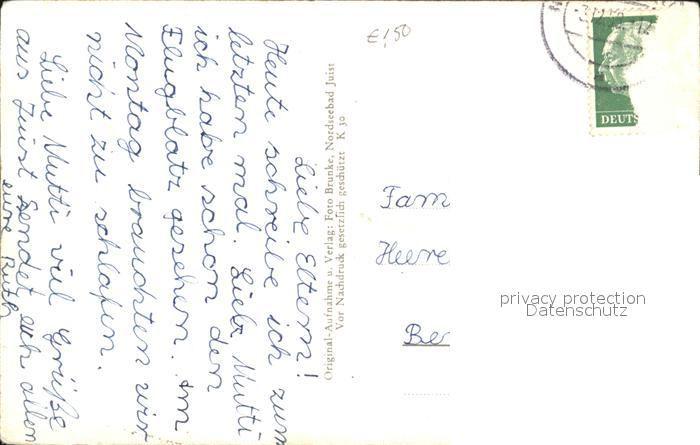 Liebe Eltern!
Heute schreibe ich zum
letzten mal. Liebe Mutti
ich habe schon den
Flugblatz gesehen. Am
Montag brauchten wir
nicht zu schlafen.
Liebe Mutti viel Grüße
aus Juist sendet euch allen
eure Ruth
Original-Aufnahme u. Verlag: Foto Brunke, Nordseebad Juist
Vor Nachdruck gesetzlich geschützt K 30
€ 1,50
DEUTS
Fam
Heere
Be
privacy protection
Datenschutz